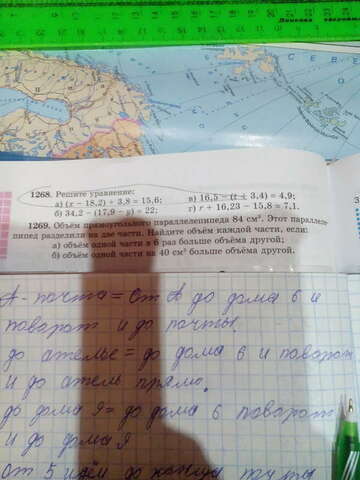 1268. Решите уравнение:
а) (x − 18,2) + 3,8 = 15,6;
в) 16,5 − (t + 3,4) = 4,9;
б) 34,2 − (17,9 − y) = 22;
г) r + 16,23 − 15,8 = 7,1.
1269. Объём прямоугольного параллелепипеда 84 см³. Этот параллеле-
пипед разделили на две части. Найдите объём каждой части, если:
а) объём одной части в 6 раз больше объёма другой;
б) объём одной части на 40 см³ больше объёма другой.
А - почта = от А до дома 6 и
поворот и до почты
до ателье = до дома 6 и поворот
и до атель прямо.
до дома 9 = до дома 6 поворот
и до дома 9
от 5 идём до конца